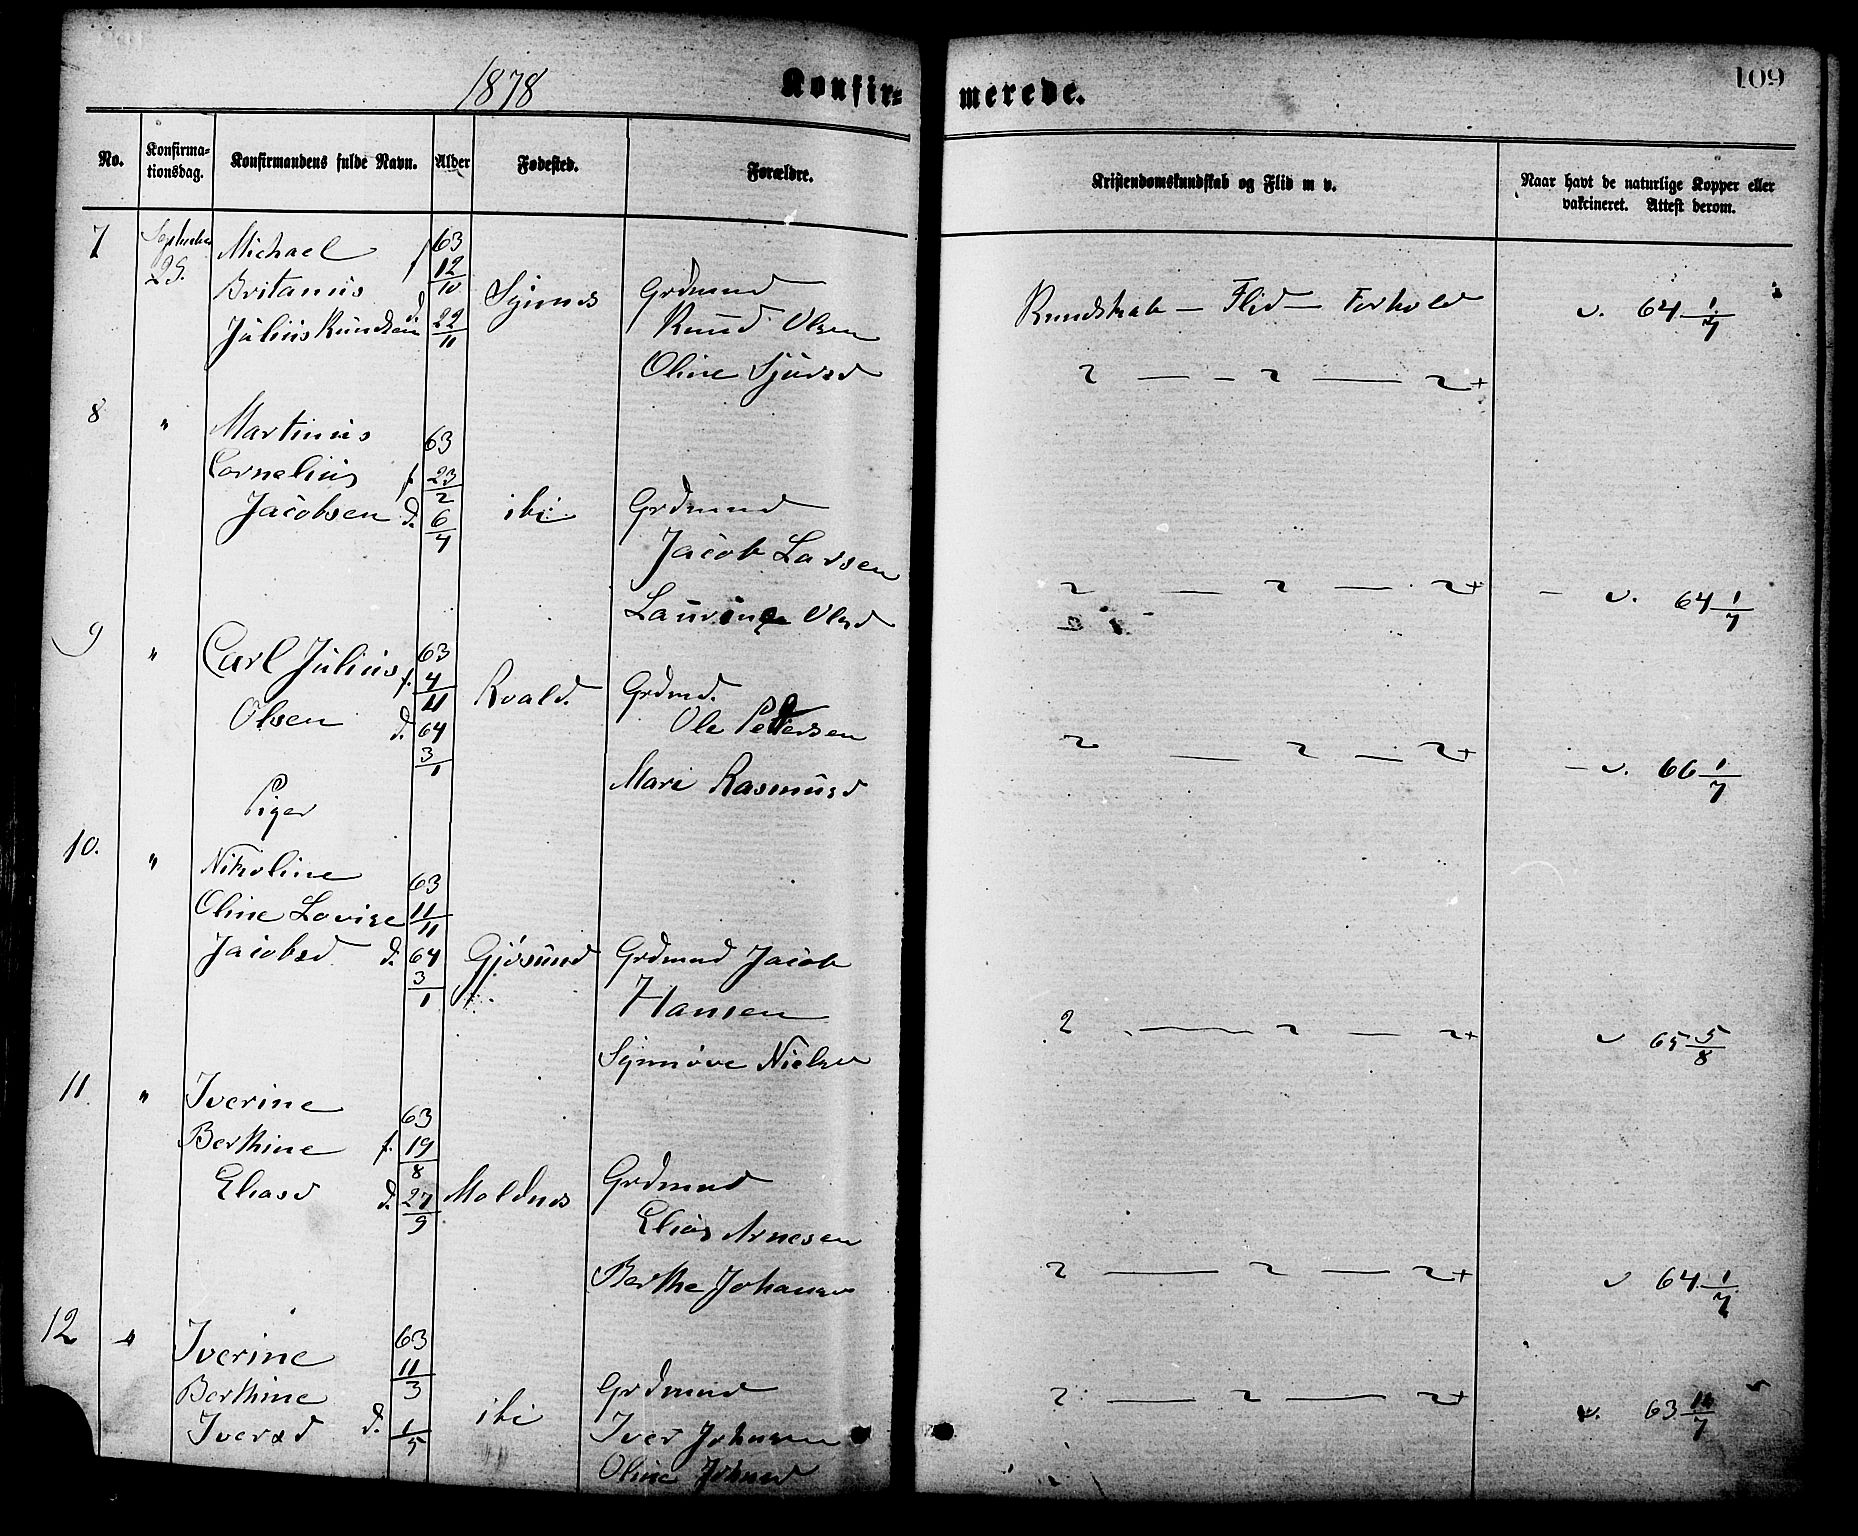 1878
Konfir=
merede.
109
No.
Konfirma-
tionsdag.
Konfirmandens fulde Navn.
Alder
Fødested.
Forældre.
Kristendomskundskab og Flid m v.
Naar havt de naturlige Kopper eller
vakcineret. Attest derom.
7
September
29.
Michael
Britanus
Julius Knudsen
f
d.
63
12/10
22/11
Synnes
Grdmand
Knud Olsen
Oline Sjursd
Kundskab — Flid — Forhold
2 — 2 — 2+
v. 64 1/7
8
"
Martinus
Cornelius
Jacobsen
f
d.
63
23/2
6/4
ibi
Grdmand
Jacob Larsen
Laurine Olsd
2 — 2 — 2+
- v. 64 1/7
9
"
Carl Julius
Olsen
f.
d.
63
4/11
64
3/1
Roald.
Grdmd.
Ole Pettersen
Mari Rasmusd
2 — 2 — 2+
- v. 66 1/7
Piger
10.
"
Nikoline
Oline Lovise
Jacobsd
d.
63
11/11
64
3/1
Gjøsund
Grdmand Jacob
Hansen
Synnøve Nielsd
2 — 2 — 2+
v 65 5/8
11.
"
Iverine
Berthine
Eliasd
f.
d.
63
19/8
27/9
Moldnes
Grdmand
Elias Arnesen
Berthe Johansd
2 — 2 — 2+
v 64 1/7
12
"
Iverine
Berthine
Iversd
d.
63
11/3
1/5
ibi
Grdmand
Iver Johnsen
Oline Johnsd
2 — 2 — 2+
v. 63 /7